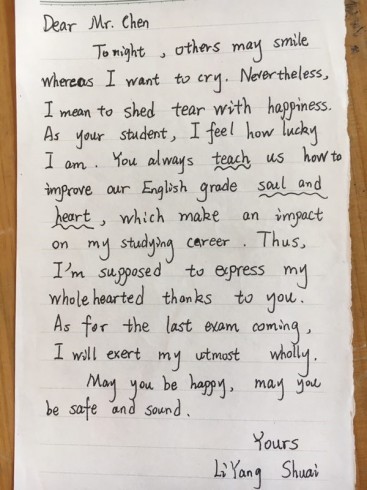 Dear Mr. Chen
Tonight, others may smile
whereas I want to cry. Nevertheless,
I mean to shed tear with happiness.
As your student, I feel how lucky
I am. You always teach us how to
improve our English grade soul and
heart, which make an impact
on my studying career. Thus,
I'm supposed to express my
wholehearted thanks to you.
As for the last exam coming,
I will exert my utmost wholly.
May you be happy, may you
be safe and sound.
Yours
Li Yang Shuai